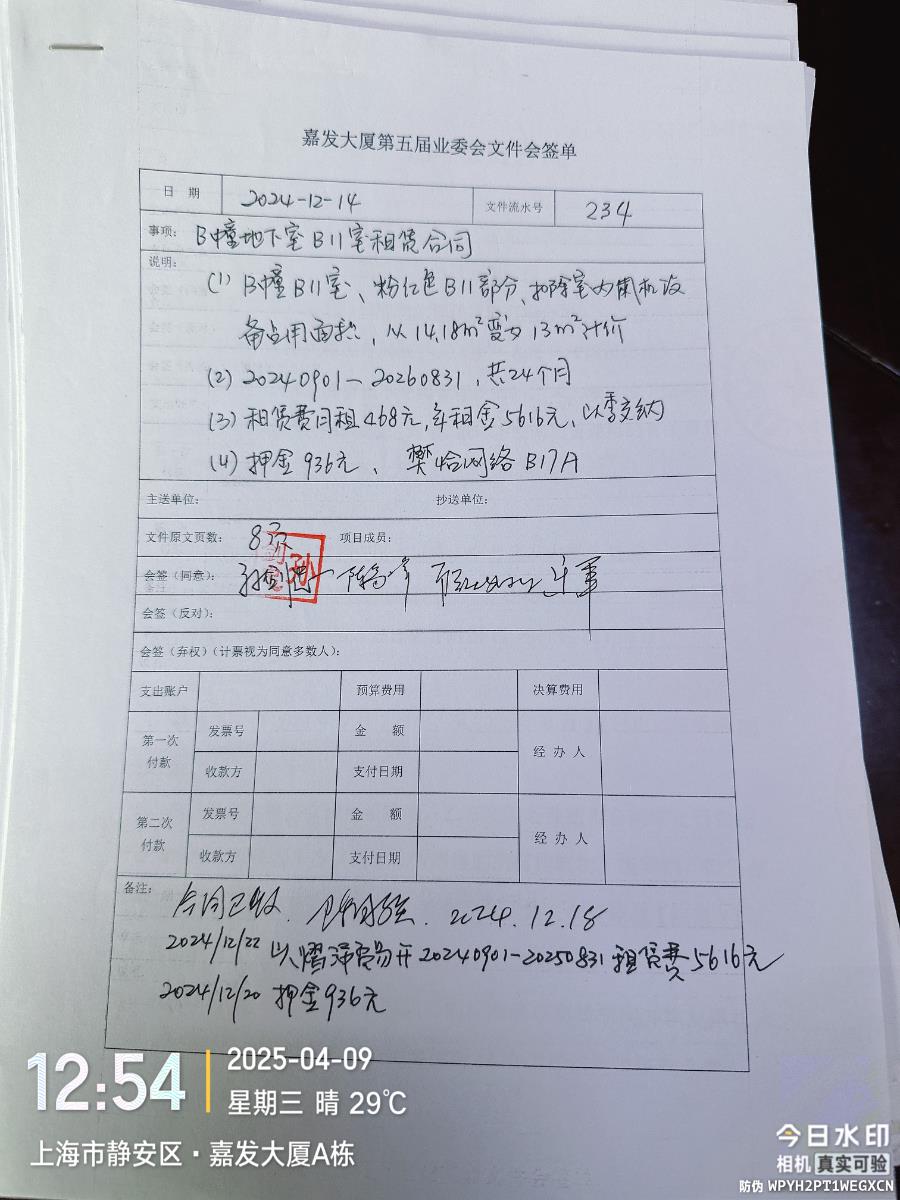 嘉发大厦第五届业委会文件会签单
日 期 2024-12-14 文件流水号 234
事项: B幢地下室B11室租赁合同
说明:
(1) B幢B11室、粉红色B11部分、扣除室内风机设
备占用面积, 从14.18m²变为13m²计价
(2) 20240901-20260831, 共24个月
(3) 租赁费月租468元, 年租金5616元、以季交纳
(4) 押金936元、 网络B17A
主送单位: 抄送单位:
文件原文页数: 8页 项目成员:
会签(同意):
会签(反对):
会签(弃权)(计票视为同意多数人):
支出账户 预算费用 决算费用
第一次付款 发票号 金 额 经 办 人
收款方 支付日期
第二次付款 发票号 金 额 经 办 人
收款方 支付日期
备注:
合同已收. 2024.12.18
2024/12/22 以 贸易开20240901-20250831租赁费5616元
2024/12/20 押金936元
12:54 2025-04-09
星期三 晴 29℃
上海市静安区·嘉发大厦A栋
今日水印
相机 真实可验
防伪 WPYH2PT1WEGXCN